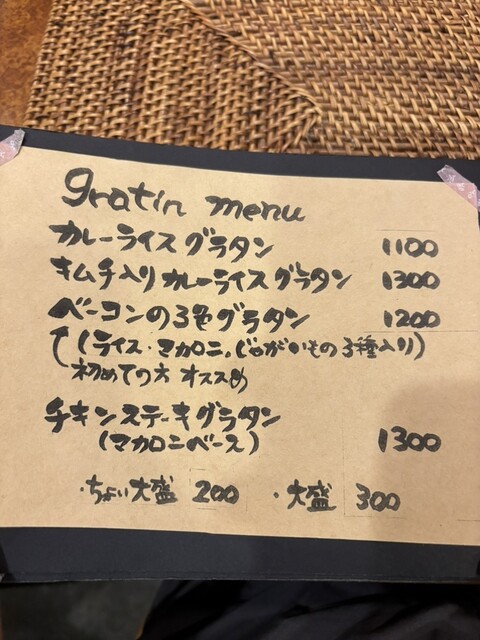 gratin menu
カレーライスグラタン 1100
キムチ入りカレーライスグラタン 1300
ベーコンの3色グラタン 1200
(ライス・マカロニ・じゃがいもの3種入り)
初めての方オススメ
チキンステーキグラタン
(マカロニベース) 1300
・ちょい大盛 200 ・大盛 300